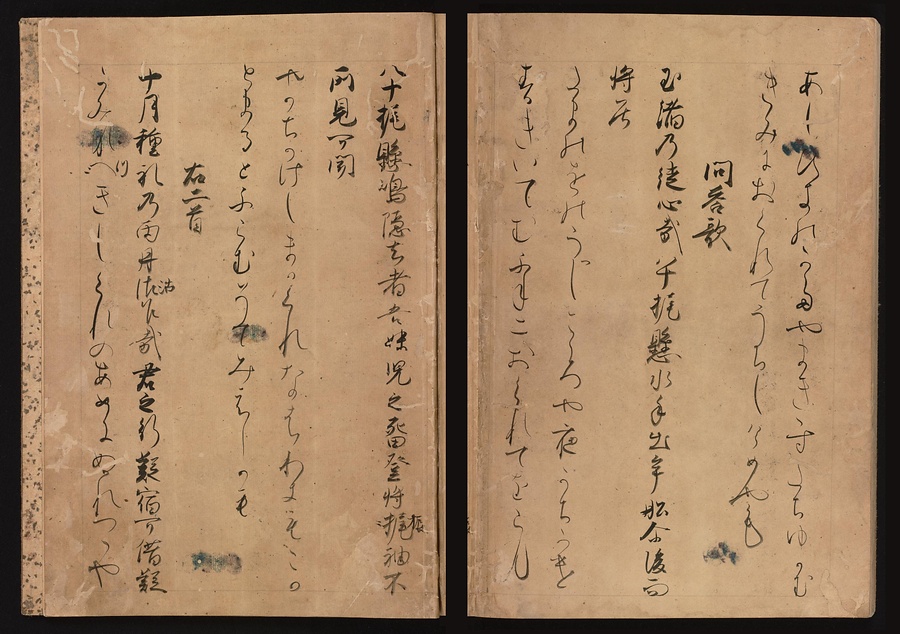 あしひきのかたやまきすたちゆかむ
きみにおくれてうちしけめやも
問答歌
玉緒乃徒心哉八十梶懸水手出牟船尓後而
将居
たまのをのうつしこころや
こきいてむふねにおくれてをらん
八十梶懸嶋隠去者吾妹児之留登将振袖不
所見可聞
やそちかけしまかくれなはわきもこか
とまるとふらむそてみえしかも
右二首
十月種礼乃雨丹沾乍哉君之行疑宿可借疑
かみなつきしくれのあめにぬれつつや